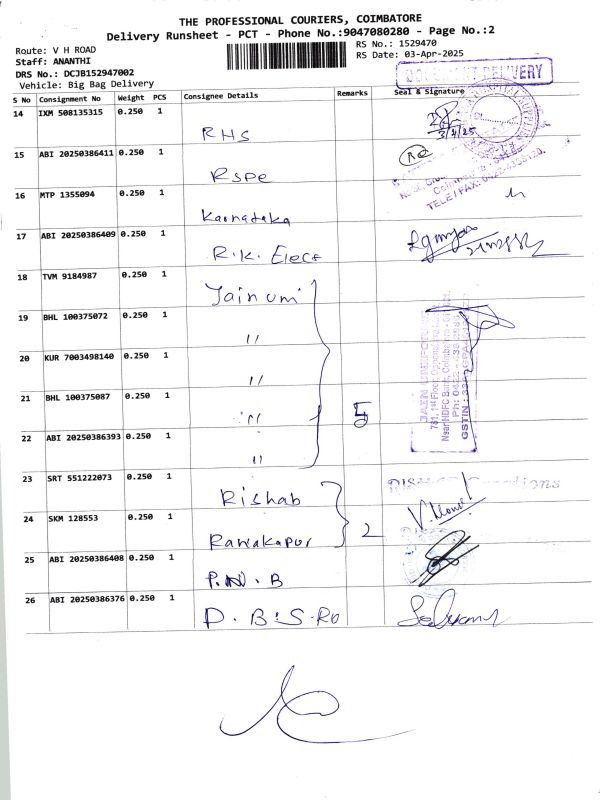 THE PROFESSIONAL COURIERS, COIMBATORE
Delivery Runsheet - PCT - Phone No.:9047080280 - Page No.:2
Route: V H ROAD
RS No.: 1529470
Staff: ANANTHI
RS Date: 03-Apr-2025
DRS No.: DCJB152947002
Vehicle: Big Bag Delivery
DOCUMENT DELIVERY
S No Consignment No Weight PCS Consignee Details Remarks Seal & Signature
14 IXM 508135315 0.250 1
RHS
3/4/25
15 ABI 20250386411 0.250 1
RSPE
16 MTP 1355094 0.250 1
Karnataka
TELE / FAX:
17 ABI 20250386409 0.250 1
R.K. Elect
18 TVM 9184987 0.250 1
Jainumi
19 BHL 100375072 0.250 1
"
20 KUR 7003498140 0.250 1
"
21 BHL 100375087 0.250 1
" 5
22 ABI 20250386393 0.250 1
"
23 SRT 551222073 0.250 1
Rishab
24 SKM 128553 0.250 1
Ramakapur 2
25 ABI 20250386408 0.250 1
P.N.B
26 ABI 20250386376 0.250 1
D.B.S.RO